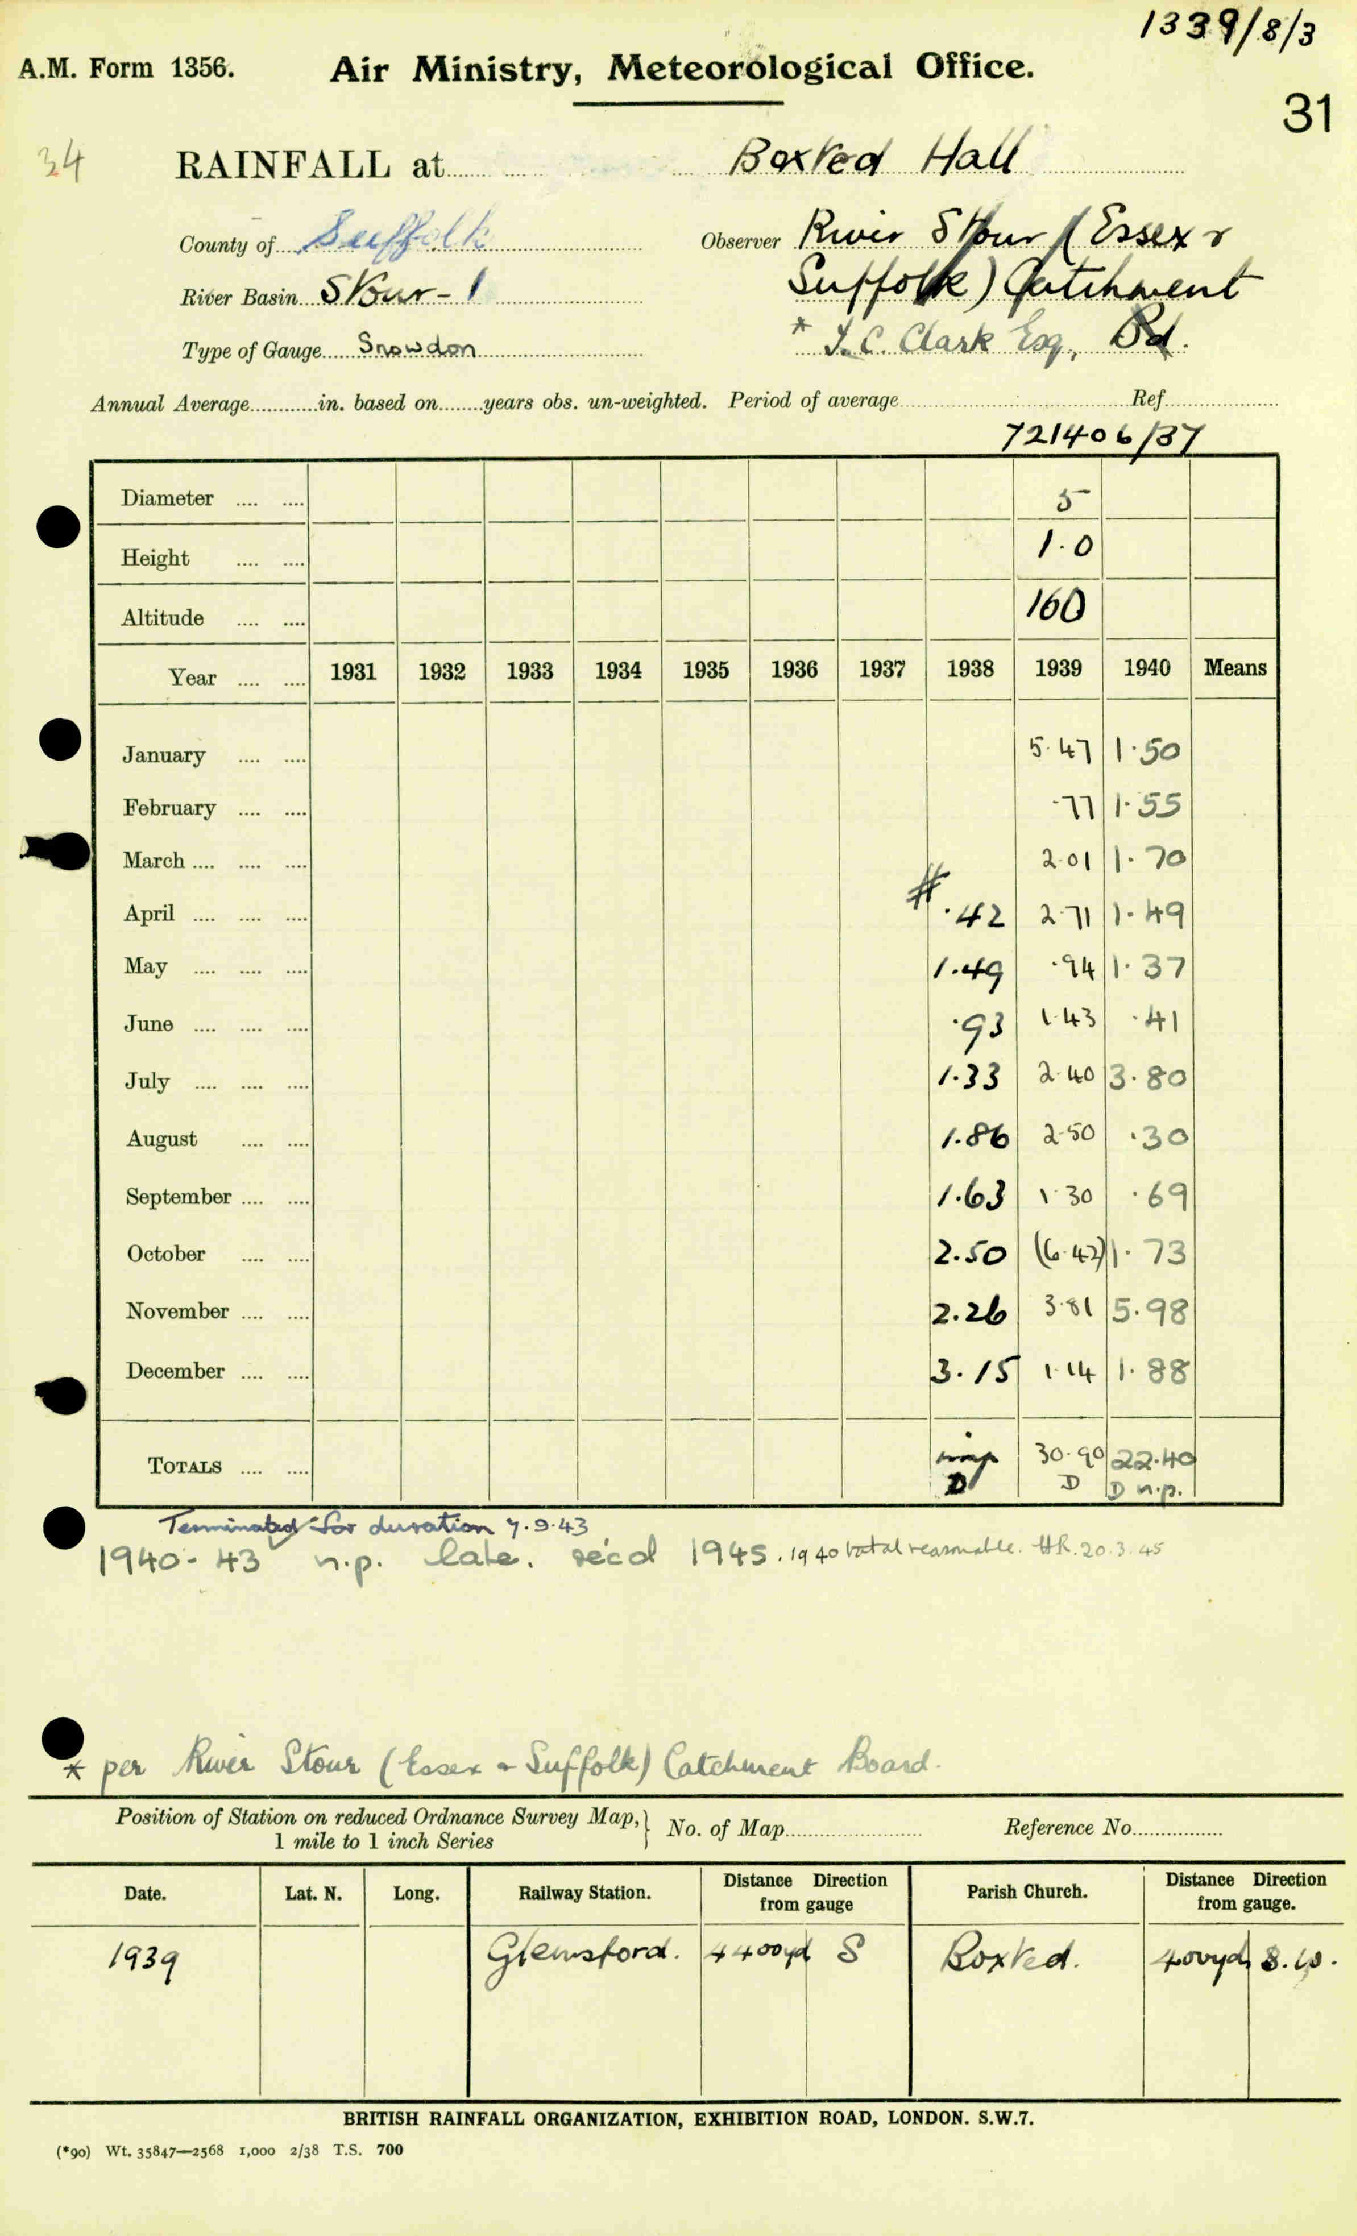 1339/8/3
A.M. Form 1356. Air Ministry, Meteorological Office.
31
34 RAINFALL at Boxted Hall
County of Suffolk Observer River Stour (Essex &
River Basin Stour - 1 Suffolk) Catchment
Type of Gauge Snowdon * J.C. Clark Esq, Bd.
Annual Average............in. based on........years obs. un-weighted. Period of average Ref.
721406/37
Diameter .... .... 5
Height .... .... 1.0
Altitude .... .... 160
Year .... .... 1931 1932 1933 1934 1935 1936 1937 1938 1939 1940 Means
January .... .... 5.47 1.50
February .... .... .77 1.55
March .... .... .... 2.01 1.70
#
April .... .... .... .42 2.71 1.49
May .... .... .... 1.49 .94 1.37
June .... .... .... .93 1.43 .41
July .... .... .... 1.33 2.40 3.80
August .... .... 1.86 2.50 .30
September .... .... 1.63 1.30 .69
October .... .... 2.50 (6.42) 1.73
November .... .... 2.26 3.81 5.98
December .... .... 3.15 1.14 1.88
TOTALS .... .... imp 30.90 22.40
D D D n.p.
Terminated for duration 7.9.43
1940-43 n.p. late. rec'd 1945. 1940 total reasonable. HR. 20.3.45
* per River Stour (Essex & Suffolk) Catchment Board.
Position of Station on reduced Ordnance Survey Map,} No. of Map Reference No.
1 mile to 1 inch Series
Date. Lat. N. Long. Railway Station. Distance Direction from gauge Parish Church. Distance Direction from gauge.
1939 Glemsford. 4400yd S Boxted. 400yd S.W.
BRITISH RAINFALL ORGANIZATION, EXHIBITION ROAD, LONDON. S.W.7.
(*90) Wt. 35847—2568 1,000 2/38 T.S. 700